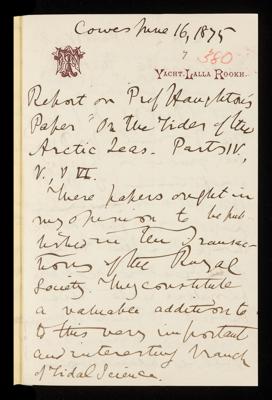 Cowes June 16, 1875
7
380
YACHT-LALLA ROOKH.
Report on Prof Haughton's
Paper "On the Tides of the
Arctic Seas. Parts IV,
V, & VI.
These papers ought in
my opinion to be pub
lished in the Transac-
tions of the Royal
Society. They constitute
a valuable addition to
to this very important
and interesting branch
of Tidal Science.